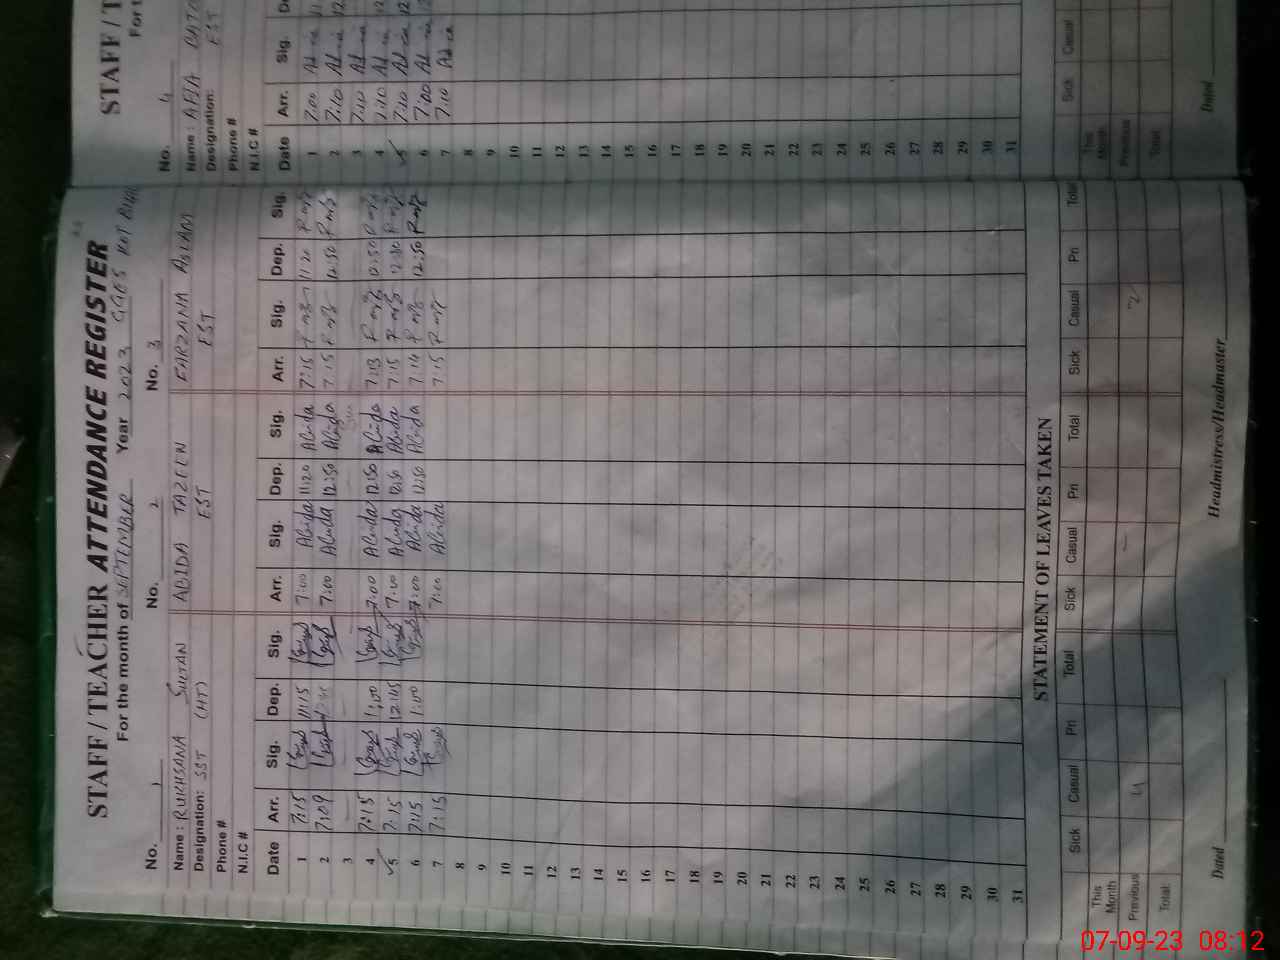 STAFF / TEACHER ATTENDANCE REGISTER
For the month of SEPTEMBER Year 2023 GGES
No. 1 No. 2 No. 3
Name : RUKHSANA SULTAN ABIDA TAZEEN FARZANA ASLAM
Designation: SST (HT) EST EST
Phone #
N.I.C #
Date Arr. Sig. Dep. Sig. Arr. Sig. Dep. Sig. Arr. Sig. Dep. Sig.
1 7:15 11:15 7:00 Abida 11:20 Abida 7:15 11:20
2 7:09 7:00 Abida 12:50 Abida 7:15 12:50
3
4 7:15 1:00 7:00 Abida 12:50 Abida 7:13 12:50
5 7:15 12:45 7:00 Abida 12:50 Abida 7:15 12:50
6 7:15 1:00 7:00 Abida 12:50 Abida 7:14 12:50
7 7:15 7:00 Abida 7:15
8
9
10
11
12
13
14
15
16
17
18
19
20
21
22
23
24
25
26
27
28
29
30
31
STATEMENT OF LEAVES TAKEN
Sick Casual Pri Total Sick Casual Pri Total Sick Casual Pri Total
This Month
Previous 4 1 2
Total
Dated Headmistress/Headmaster
STAFF / T
For t
No. 4
Name : AFIA
Designation: EST
Phone #
N.I.C #
Date Arr. Sig.
1 7:00
2 7:10
3 7:10
4 7:10
5 7:10
6 7:00
7 7:10
8
9
10
11
12
13
14
15
16
17
18
19
20
21
22
23
24
25
26
27
28
29
30
31
Sick Casual
This Month
Previous
Total
Dated
07-09-23 08:12